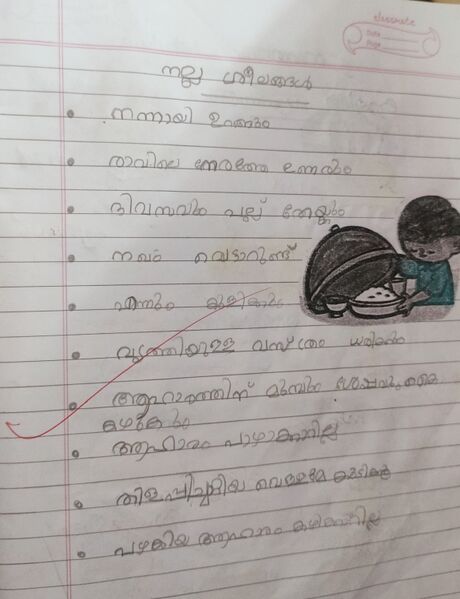 classmate
Date
Page
നല്ല ശീലങ്ങൾ
• നന്നായി ഉറങ്ങും
• രാവിലെ നേരത്തേ ഉണരും
• ദിവസവും പല്ല് തേയ്ക്കും
• നഖം വെട്ടാറുണ്ട്
• എന്നും കുളിക്കും
• വൃത്തിയുള്ള വസ്ത്രം ധരിക്കും
• ആഹാരത്തിന് മുമ്പും ശേഷവും കൈ
കഴുകും
• ആഹാരം പാഴാക്കില്ല
• തിളപ്പിച്ചാറിയ വെള്ളമേ കുടിക്കൂ
• പഴകിയ ആഹാരം കഴിക്കില്ല